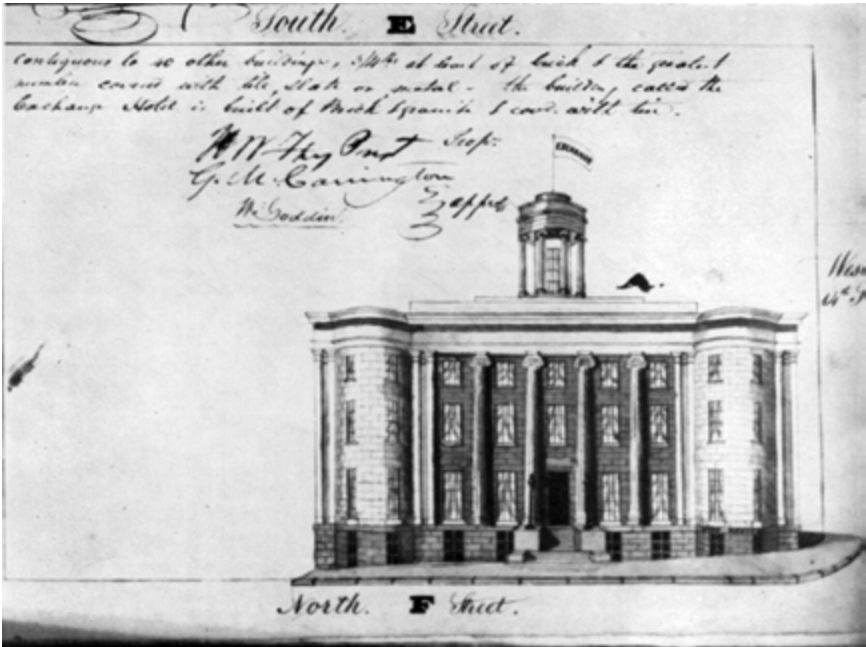 South. E Street.
contiguous to no other buildings, 3/4ths at least of brick & the greatest
number covered with tile, slate or metal - the building, called the
Exchange Hotel is built of Brick & granite & cov. with tin.
G. M. Carrington
Wm Goddin
EXCHANGE
North. F Street.